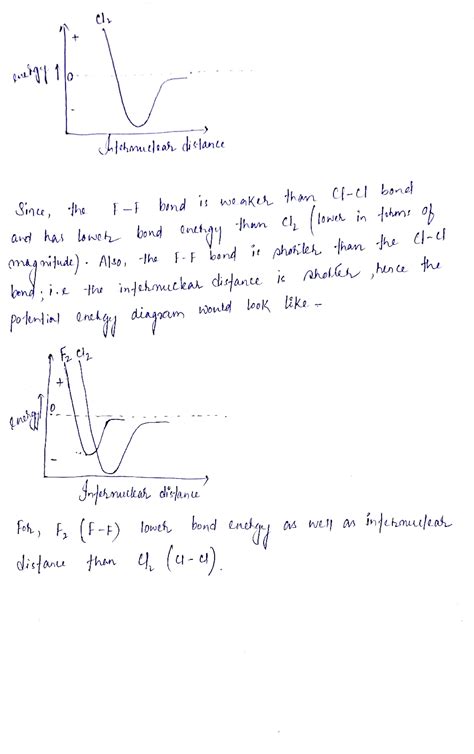 Cl₂
+
energy ↑ 0
-
Internuclear distance
Since, the F-F bond is weaker than Cl-Cl bond
and has lower bond energy than Cl₂ (lower in terms of
magnitude). Also, the F-F bond is shorter than the Cl-Cl
bond; i.e the internuclear distance is shorter, hence the
potential energy diagram would look like -
F₂ Cl₂
+
0
energy ↑
-
Internuclear distance
For, F₂ (F-F) lower bond energy as well as internuclear
distance than Cl₂ (Cl-Cl).